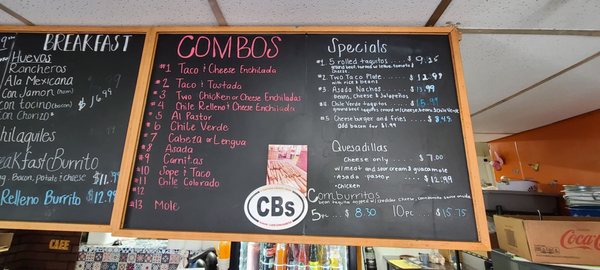 BREAKFAST
Huevos
Rancheros
Ala Mexicana
con Jamon (ham)
con tocino (bacon)
$16.99
hilaquiles
eakfast Burrito
Bacon, potato & cheese $11.99
Relleno Burrito $12.99
COMBOS
#1 Taco & Cheese Enchilada
#2 Taco & Tostada
#3 Two Chicken or Cheese Enchiladas
#4 Chile Relleno & Cheese Enchilada
#5 Al Pastor
6 Chile Verde
7 Cabeza or Lengua
#8 Asada
#9 Carnitas
#10 Sope & Taco
#11 Chile Colorado
#12
#13 Mole
CBs
Specials
#1 5 rolled taquitos $9.25
ground beef, turned w/ lettuce, tomato &
cheese
#2 Two Taco Plate $12.99
with rice & beans
#3 Asada Nachos $13.99
beans, Cheese & Jalapeños
#4 Chile Verde taquitos $15.95
#5 Cheese burger and Fries $8.45
Add bacon for $1.99
Quesadillas
Cheese only $7.00
w/ meat and sour cream & guacamole
·Asada ·pastor $12.99
·chicken
Comburritos
5pc $8.30 10pc $15.75
CAFE
Coca-